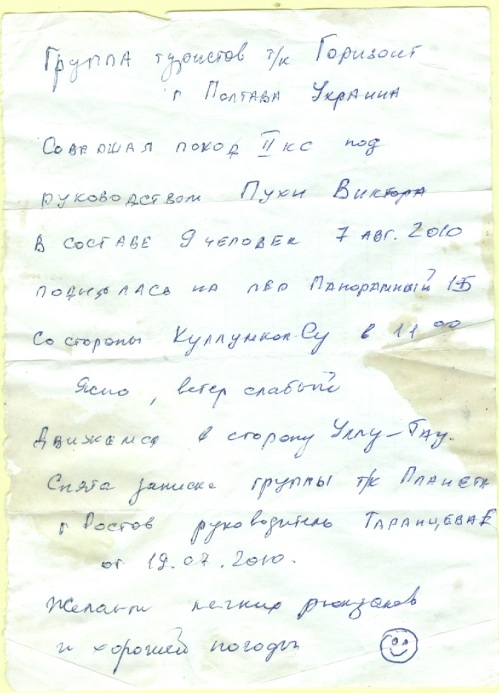 Группа туристов т/к Горизонт
г Полтава Украина
Совершая поход II кс под
руководством Пухи Виктора
в составе 9 человек 7 авг. 2010
поднялась на пер Панорамный 1Б
со стороны Куллумкол-Су в 11 00
Ясно, ветер слабый
Движемся в сторону Уллу-Тау.
Снята записка группы т/к Планета
г Ростов руководитель Таранцева Е
от 19.07.2010.
Желаем легких рюкзаков
и хорошей погоды